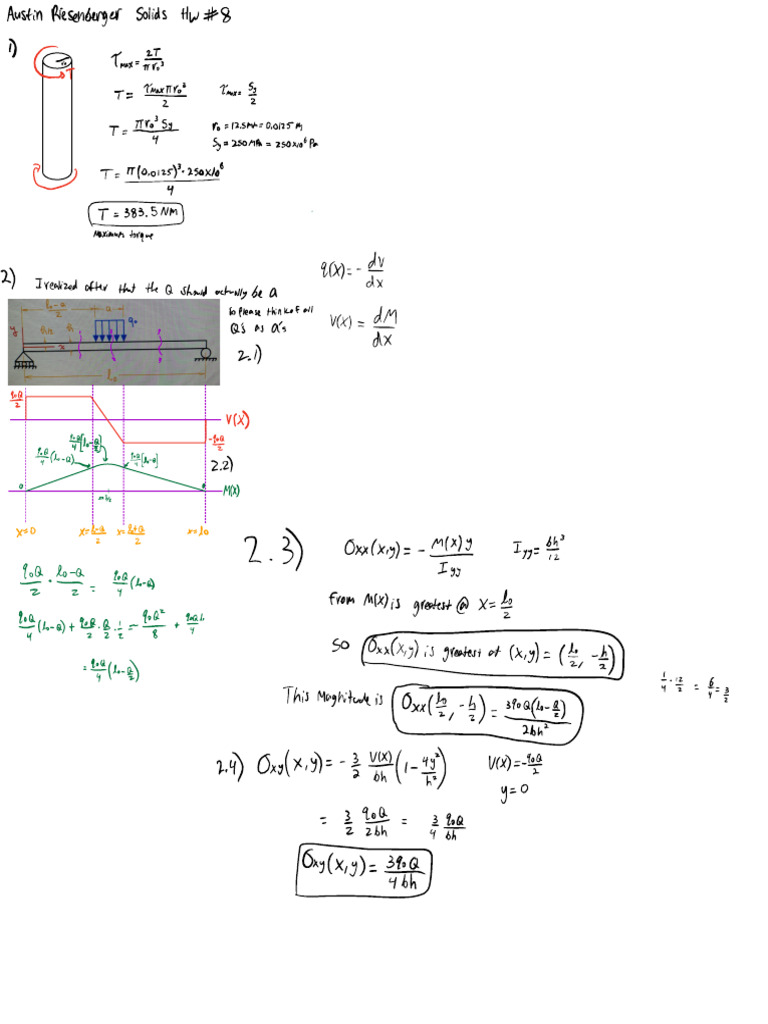 Austin Riesenberger Solids HW #8
1)
T
τmax = 2T / πr₀³
T = τmax πr₀³ / 2
τmax = Sy / 2
T = πr₀³ Sy / 4
r₀ = 12.5mm = 0.0125 m
Sy = 250 MPa = 250x10⁶ Pa
T = π(0.0125)³ · 250x10⁶ / 4
T = 383.5 NM
Maximum torque
2) I realized after that the Q should actually be a
so please think of all
Q's as a's
q(x) = - dv / dx
V(x) = dM / dx
l₀-a / 2
a
q₀
y
h/2
h
x
l₀
2.1)
q₀Q / 2
V(x)
-q₀Q / 2
q₀Q/4 (l₀-Q)
q₀Q/4 [l₀-Q/2]
q₀Q/4 [l₀-Q]
2.2)
0
M(x)
x=0
x= l₀-Q / 2
x= l₀+Q / 2
x=l₀
q₀Q/2 · l₀-Q/2 = q₀Q/4 (l₀-Q)
q₀Q/4 (l₀-Q) + q₀Q/2 · Q/2 · 1/2 = - q₀Q²/8 + q₀Ql₀/4
= q₀Q/4 (l₀-Q/2)
2.3) Oxx(x,y) = - M(x) y / Iyy
Iyy = bh³ / 12
From M(x) is greatest @ x= l₀/2
SO Oxx(x,y) is greatest at (x,y) = (l₀/2, -h/2)
This Magnitude is Oxx(l₀/2, -h/2) = 3q₀Q(l₀-Q/2) / 2bh²
1/4 · 12/2 = 6/4 = 3/2
2.4) Oxy(x,y) = - 3/2 V(x)/bh (1 - 4y²/h²)
V(x) = -q₀Q / 2
y=0
= 3/2 q₀Q/2bh = 3/4 q₀Q/bh
Oxy(x,y) = 3q₀Q / 4bh